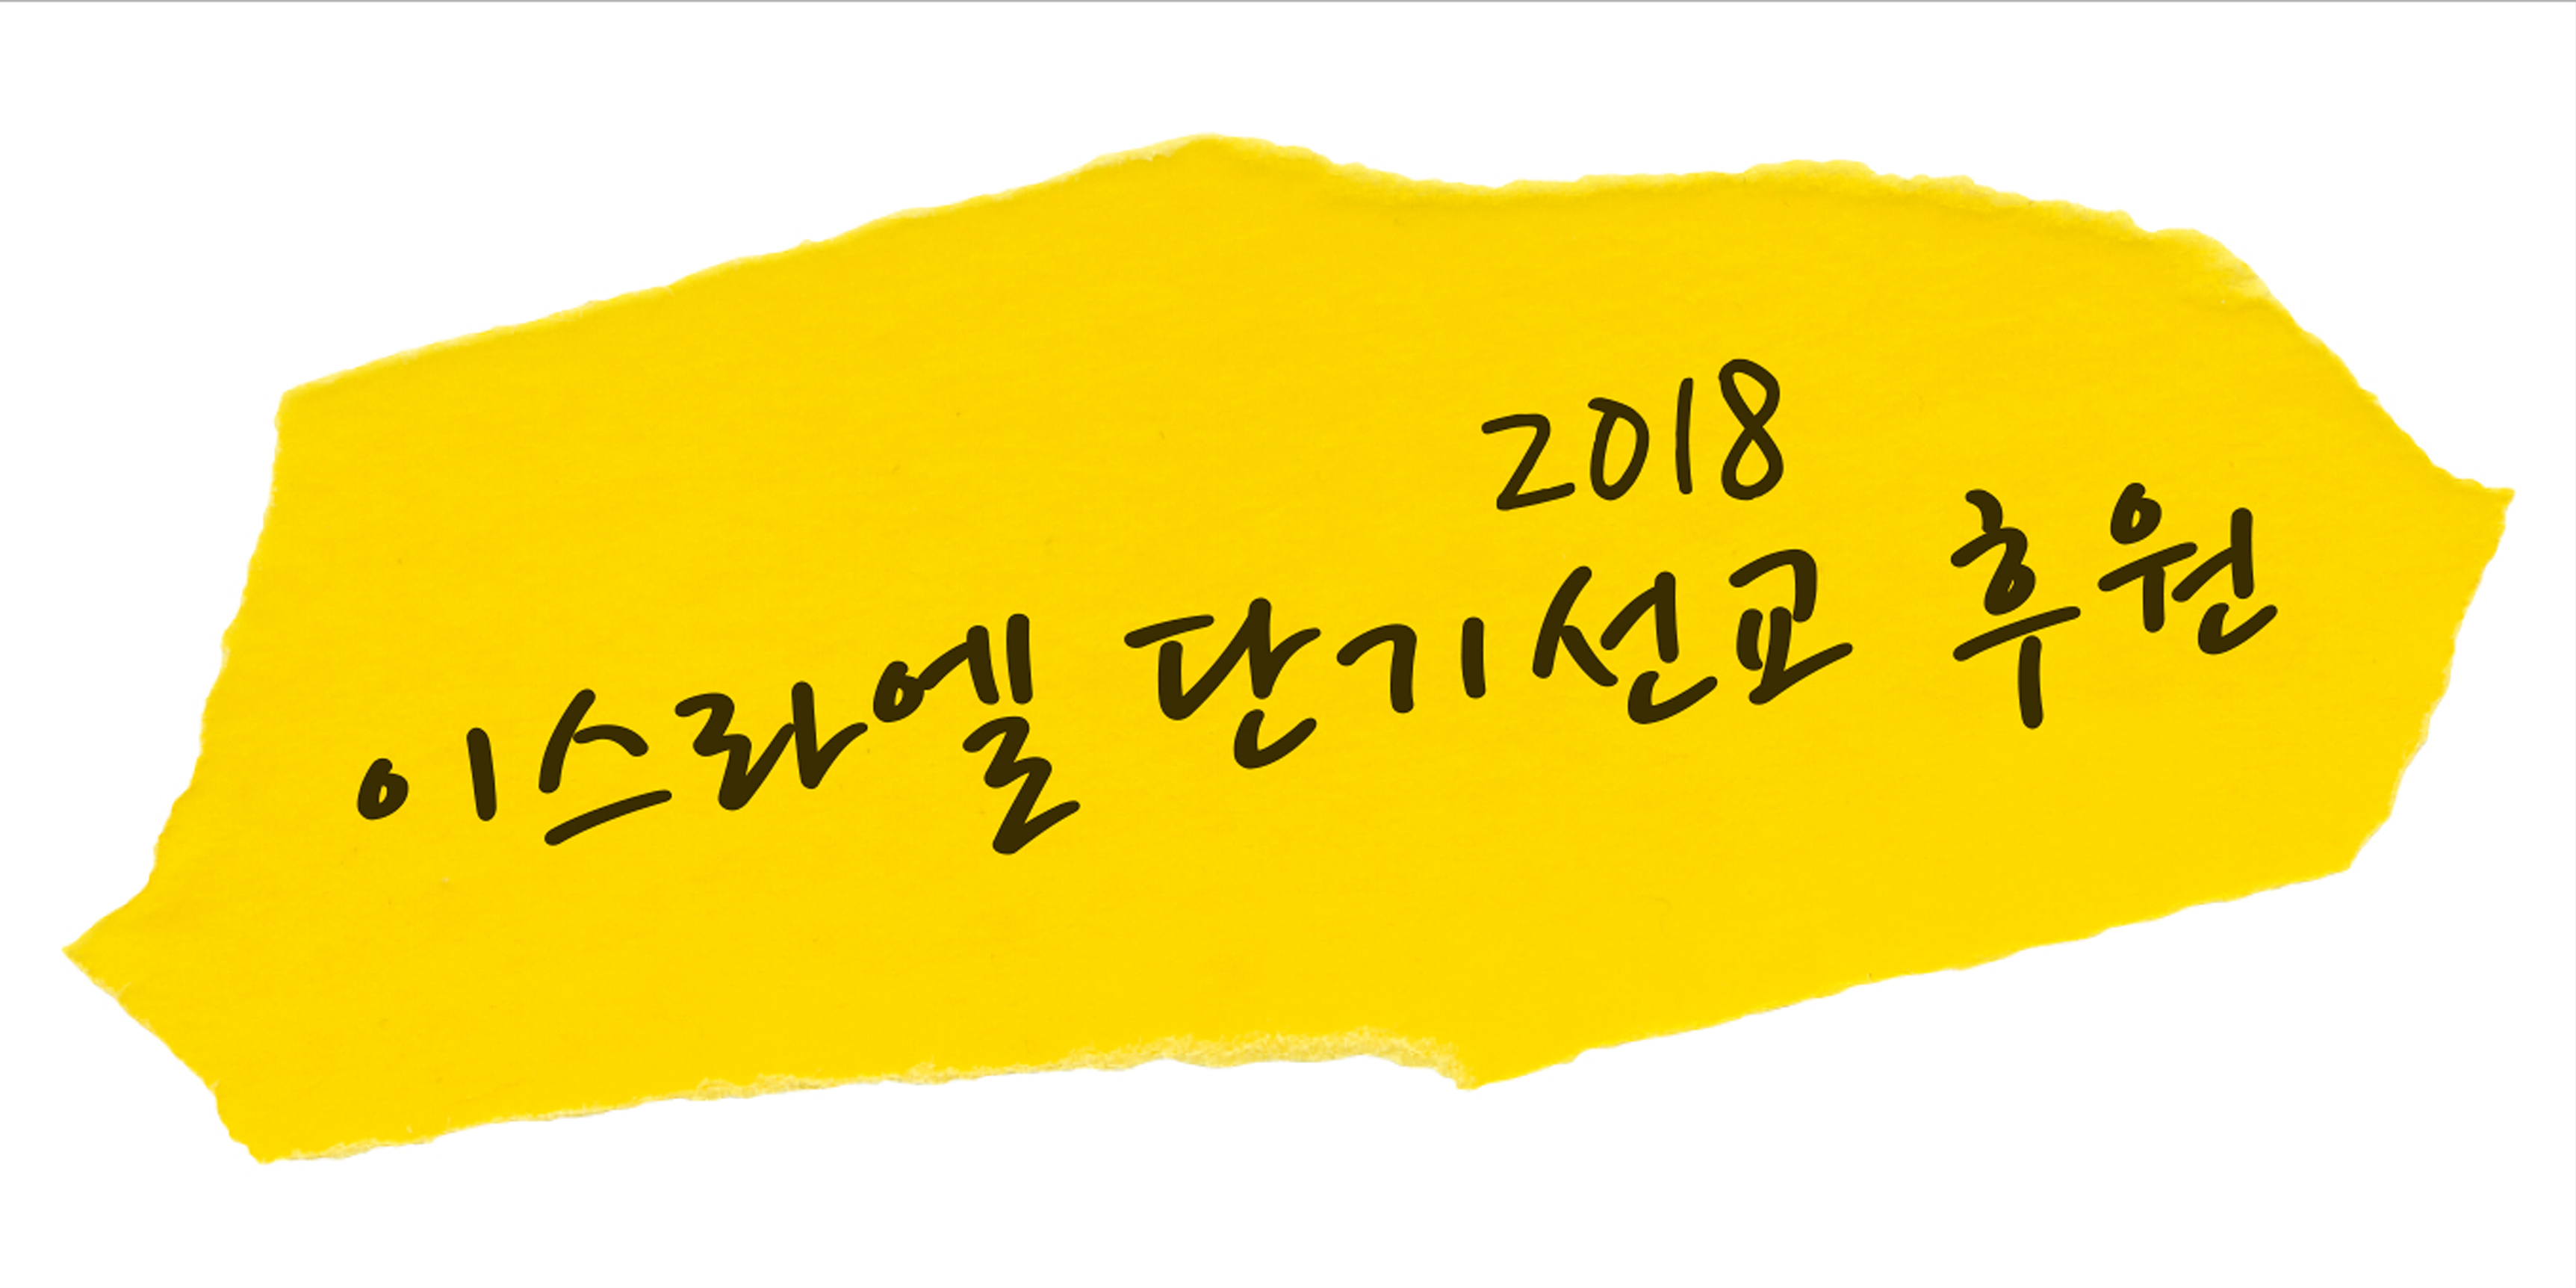 2018
이스라엘 단기선교 후원